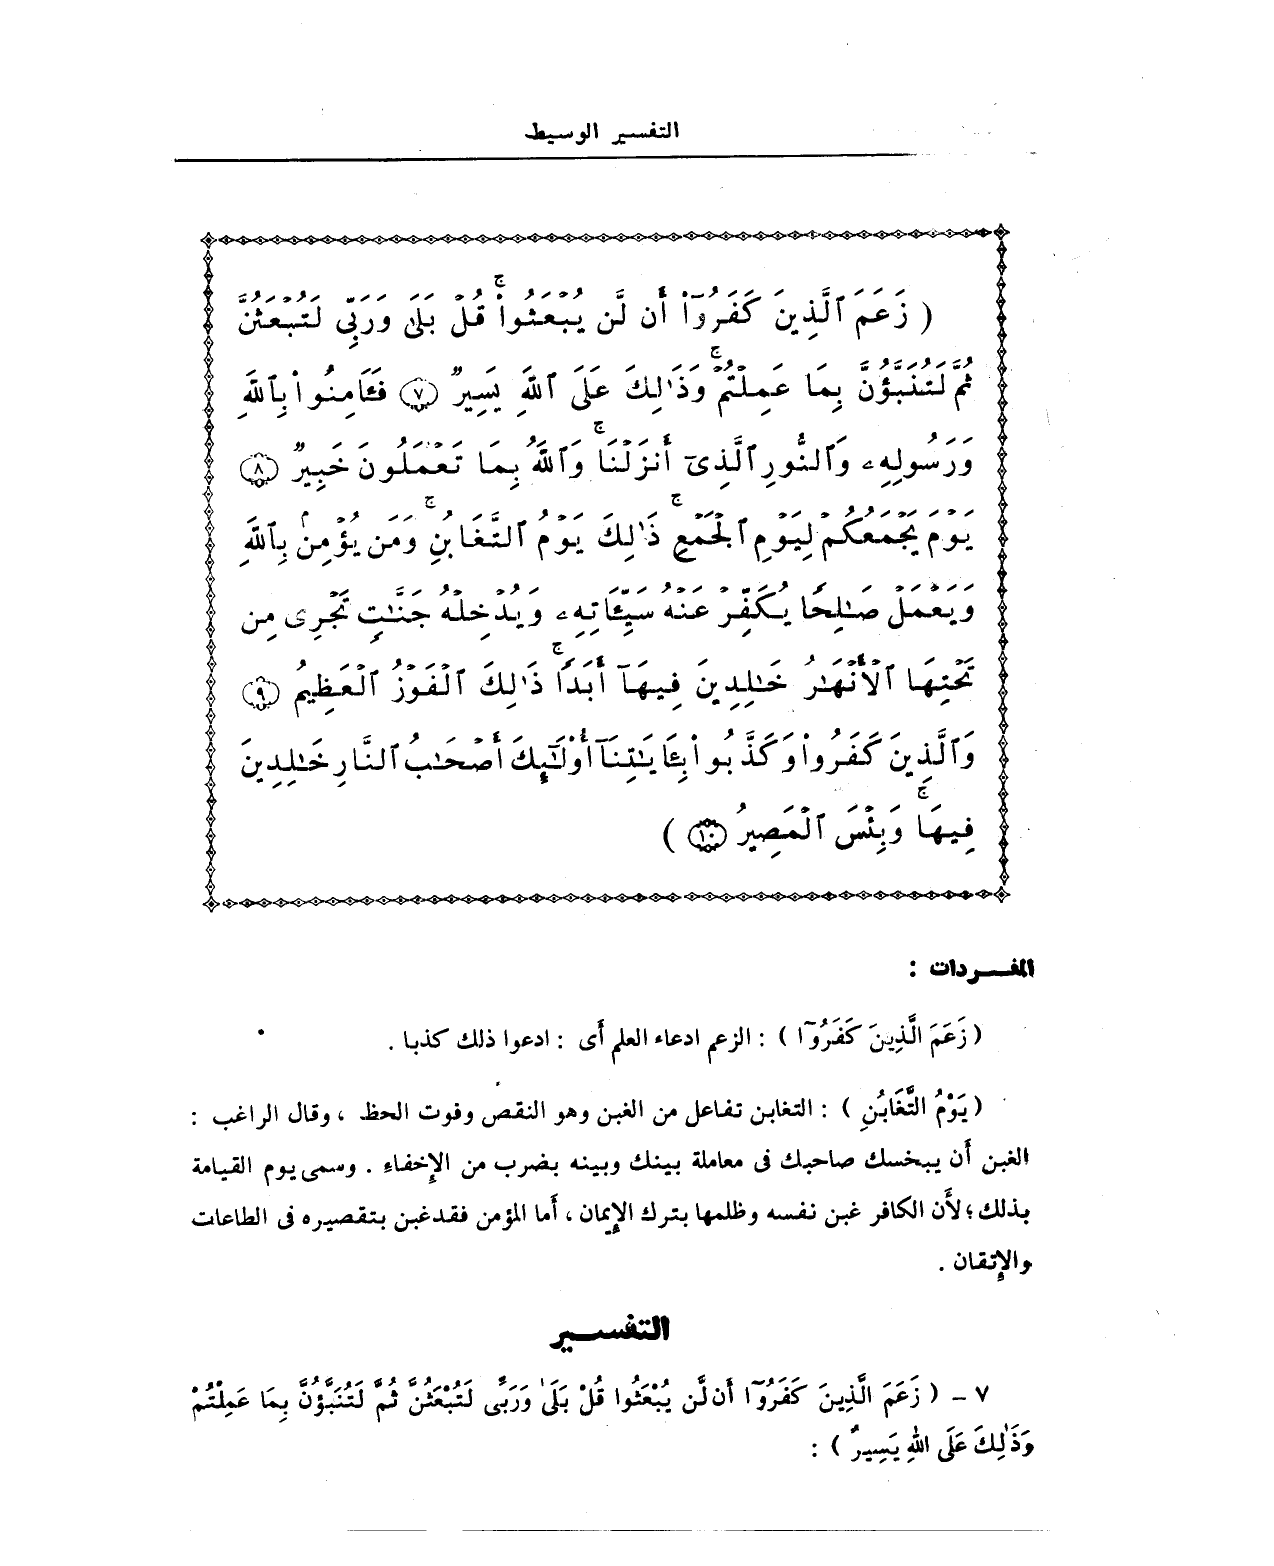 التفسير الوسيط
( زَعَمَ ٱلَّذِينَ كَفَرُوٓا۟ أَن لَّن يُبْعَثُوا۟ ۚ قُلْ بَلَىٰ وَرَبِّى لَتُبْعَثُنَّ
ثُمَّ لَتُنَبَّؤُنَّ بِمَا عَمِلْتُمْ ۚ وَذَٰلِكَ عَلَى ٱللَّهِ يَسِيرٌ ﴿٧﴾ فَـَٔامِنُوا۟ بِٱللَّهِ
وَرَسُولِهِۦ وَٱلنُّورِ ٱلَّذِىٓ أَنزَلْنَا ۚ وَٱللَّهُ بِمَا تَعْمَلُونَ خَبِيرٌ ﴿٨﴾
يَوْمَ يَجْمَعُكُمْ لِيَوْمِ ٱلْجَمْعِ ۖ ذَٰلِكَ يَوْمُ ٱلتَّغَابُنِ ۗ وَمَن يُؤْمِنۢ بِٱللَّهِ
وَيَعْمَلْ صَـٰلِحًا يُكَفِّرْ عَنْهُ سَيِّـَٔاتِهِۦ وَيُدْخِلْهُ جَنَّـٰتٍ تَجْرِى مِن
تَحْتِهَا ٱلْأَنْهَـٰرُ خَـٰلِدِينَ فِيهَآ أَبَدًا ۚ ذَٰلِكَ ٱلْفَوْزُ ٱلْعَظِيمُ ﴿٩﴾
وَٱلَّذِينَ كَفَرُوا۟ وَكَذَّبُوا۟ بِـَٔايَـٰتِنَآ أُو۟لَـٰٓئِكَ أَصْحَـٰبُ ٱلنَّارِ خَـٰلِدِينَ
فِيهَا ۖ وَبِئْسَ ٱلْمَصِيرُ ﴿١٠﴾ )
المفـــردات :
( زَعَمَ الَّذِينَ كَفَرُوٓا ) : الزعم ادعاء العلم أى : ادعوا ذلك كذبا .
( يَوْمُ التَّغَابُنِ ) : التغابن تفاعل من الغبن وهو النقص وفوت الحظ ، وقال الراغب :
الغبن أن يبخسك صاحبك فى معاملة بينك وبينه بضرب من الإخفاء . وسمى يوم القيامة
بذلك ؛ لأن الكافر غبن نفسه وظلمها بترك الإيمان ، أما المؤمن فقد غبن بتقصيره فى الطاعات
والإتقان .
التفســير
٧ - ( زَعَمَ الَّذِينَ كَفَرُوٓا أَن لَّن يُبْعَثُوا قُلْ بَلَىٰ وَرَبِّى لَتُبْعَثُنَّ ثُمَّ لَتُنَبَّؤُنَّ بِمَا عَمِلْتُمْ
وَذَٰلِكَ عَلَى اللهِ يَسِيرٌ ) :